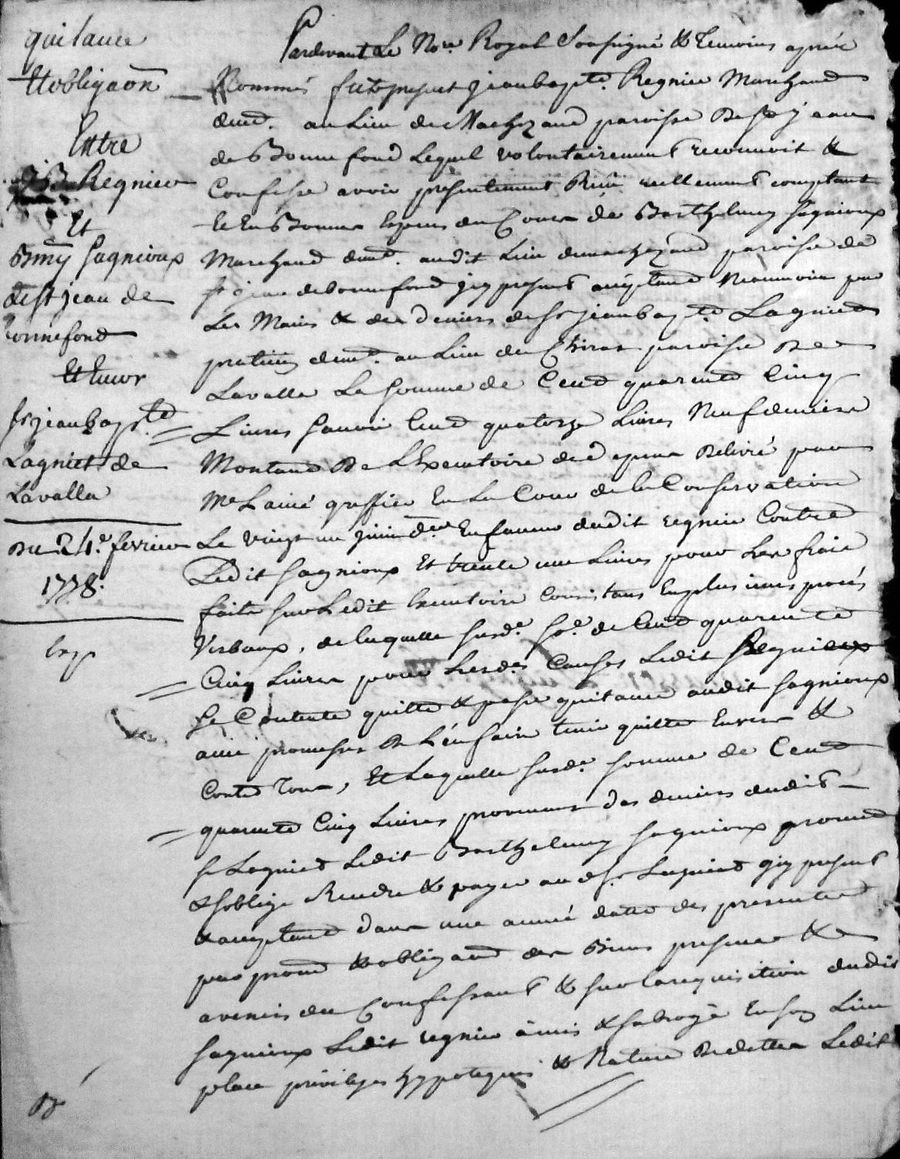 quitance
Et obligaõn
Entre
Regnier
Et
Bmy Sagnioux
de St jean de
Bonnefond
Et Encor
Sr jean bapte
Lagniet de
Lavalla
Du 24e fevrier
1778.
Pardevant Le Nore Royal Soussigné & temoins aprés
Nommés fut present jean bapte. Regnier Marchand
demt. au Lieu de paroisse De St jean
de Bonnefond Lequel volontairement reconnoit &
Confesse avoir presentement Reçu reellement comptant
& En Bonnes Especes du Cours de Barthelemy Sagnioux
Marchand demt. audit Lieu paroisse de
St jean de bonnefond icy present acceptant & par
Les Mains & des deniers de Sr jean bapte Lagniet
praticien demt. au Lieu du paroisse De
Lavalla La Somme de Cent quarente Cinq
Livres Savoir Cent quatorze Livres Neuf deniers
Montant De L'Executoire de depens Delivré par
Me Lainé greffier En La Cour de la Conservation
Le vingt un juin der En faveur dudit regnier Contre
Ledit Sagnioux Et trente une Livres pour Les frais
faits sur Ledit Executoire Consistans En plusieurs procés
Verbaux, de laquelle susde. Soe. de Cent quarente
Cinq Livres pour Lesdes Causes Ledit Regnier
Se Contente quitte & passe quitance audit Sagnioux
avec promesse De L'en faire tenir quitte Envers &
Contre Tous, Et Laquelle susde. Somme de Cent
quarente Cinq Livres provenant des deniers dudit
Sr Lagniet Ledit Barthelemy Sagnioux promet
& S'oblige Rendre & payer audt Sr Lagniet icy present
& acceptant dans une année datte des presentes
par promt & obligeant des Biens presents &
avenir du Confessant & sur la requisition dudit
Sagnioux Ledit regnier a mis & subrogé En son Lieu
place privileges hypoteques & Nature De dettes Ledit